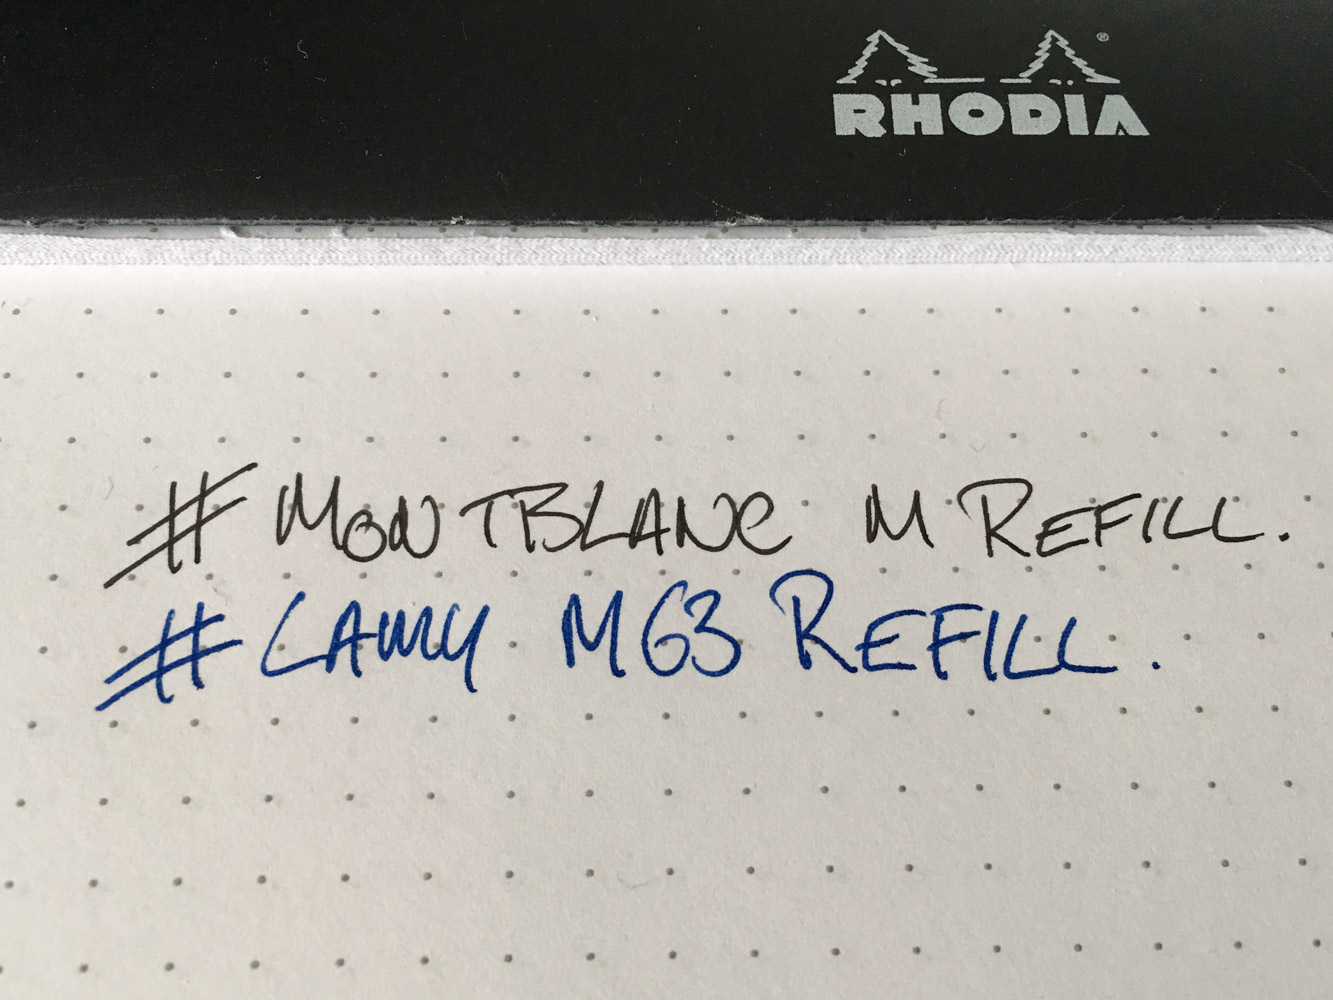 RHODIA®
# MONTBLANC M REFILL.
# LAMY M63 REFILL.